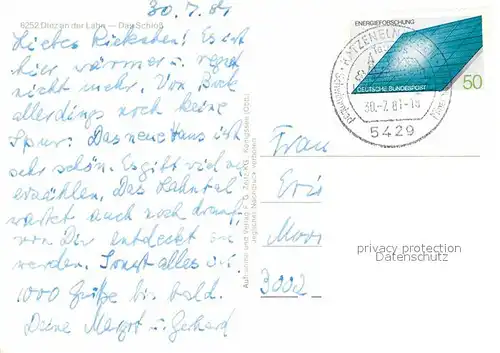 30.7.81
6252 Diez an der Lahn — Das Schloß
Liebes Rickchen! Es ist
hier wärmer u. regnet
nicht mehr. Von Bock
allerdings noch keine
Spur. Das neue Haus ist
sehr schön. Es gibt viel zu
erzählen. Das Lahntal
wartet auch noch drauf,
von Dir entdeckt zu
werden. Sonst alles
1000 Grüße bis bald.
Deine Margot u. Gerhard
Aufnahme und Verlag
jeglicher Nachdruck verboten
ENERGIEFORSCHUNG
DEUTSCHE BUNDESPOST
50
30.-7.81-18
5429
Frau
Moor
3002
privacy protection
Datenschutz